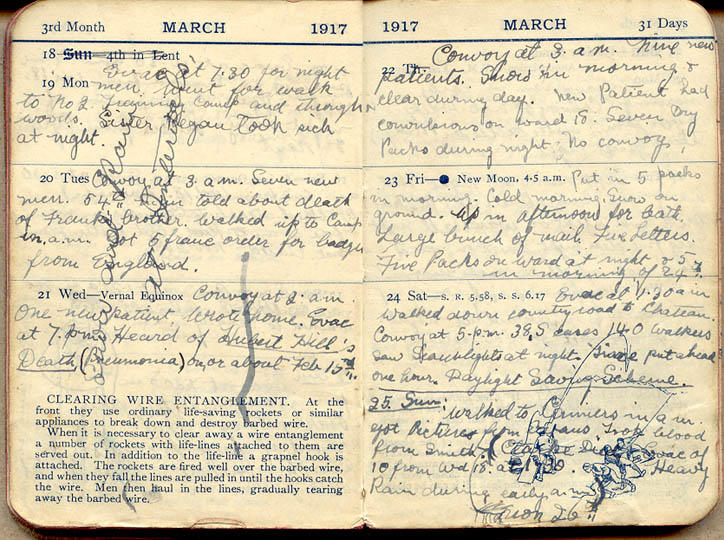 3rd Month MARCH 1917
18 Sun—4th in Lent
19 Mon Evac at 7.30 for night
men. Went for walk
to No 2 Training Camp and through
woods. Sister Regan took sick
at night.
20 Tues Convoy at 3 a.m. Seven new
men. 54 told about death
of Franks brother. Walked up to Camp
in a.m. Got 5 franc order for badges
from England.
21 Wed—Vernal Equinox Convoy at 2 a.m.
One new patient. Wrote home. Evac
at 7.pm. Heard of Hubert Hill's
Death (Pneumonia) on, or about Feb 15th
CLEARING WIRE ENTANGLEMENT. At the
front they use ordinary life-saving rockets or similar
appliances to break down and destroy barbed wire.
When it is necessary to clear away a wire entanglement
a number of rockets with life-lines attached to them are
served out. In addition to the life-line a grapnel hook is
attached. The rockets are fired well over the barbed wire,
and when they fall the lines are pulled in until the hooks catch
the wire. Men then haul in the lines, gradually tearing
away the barbed wire.
1917 MARCH 31 Days
22 Th. Convoy at 3 a.m. Nine new
patients. Snow in morning &
clear during day. New Patient had
convulsions on ward 18. Seven Dry
Packs during night. No convoy.
23 Fri— New Moon, 4.5 a.m. Put in 5 packs
in morning. Cold morning. Snow on
ground. Up in afternoon for bath.
Large bunch of mail. Five Letters.
Five Packs on ward at night & 5
in morning of 24th.
24 Sat—S. R. 5.58, S. S. 6.17 Evac at 1.30 a.m
Walked down country road to Chateau.
Convoy at 5 p.m. 38 S cases 140 walkers
Saw Searchlights at night. Time put ahead
one hour. Daylight Saving Scheme.
25. Sun. Walked to in a.m.
got Pictures from Took blood
from Smith Evac of
10 from Wd 18. at Heavy
Rain during early a.m.
on 26th